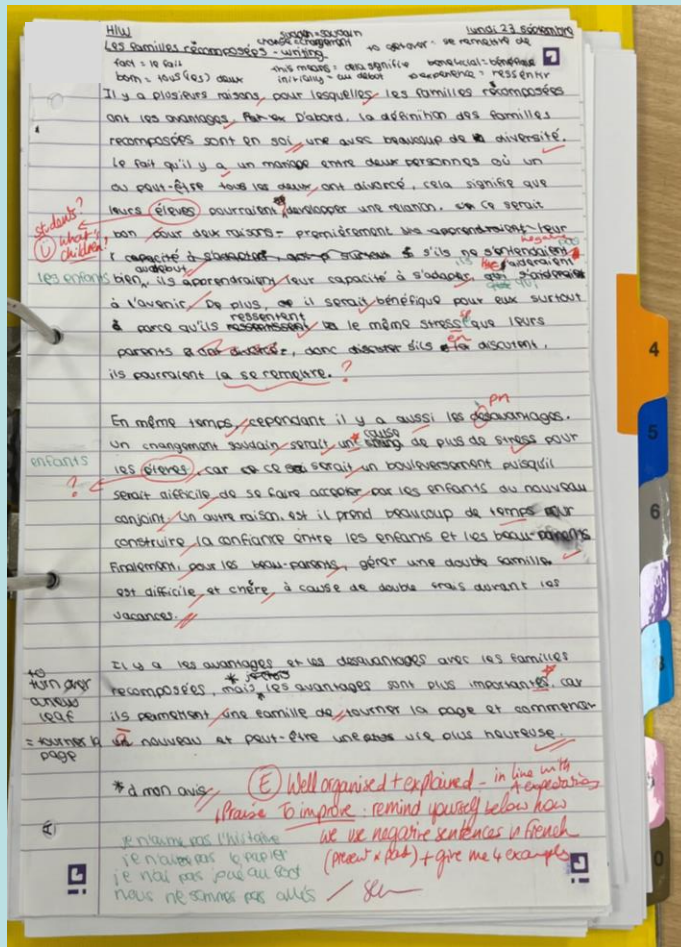 H/W sudden = soudain lundi 23 septembre
change = changement
Les familles récomposées - writing to get over = se remettre de
fact = le fait this means = cela signifie beneficial = bénéfique
both = tous (les) deux initially = au début to experience = ressentir
Il y a plusieurs raisons, pour lesquelles, les familles récomposées
ont les avantages. D'abord, la définition des familles
recomposées sont en soi, une avec beaucoup de diversité.
Le fait qu'il y a un mariage entre deux personnes où un
ou peut-être tous les deux, ont divorcé, cela signifie que
leurs élèves pourraient developper une relation. ce serait
students?
bon pour deux raisons - premièrement
U what's children?
s'ils ne s'entendaient pas
les enfants
au début
bien, ils apprendraient leur capacité à s'adapter,
à l'avenir. De plus, il serait bénéfique pour eux surtout
ressentent
parce qu'ils le même stress que leurs
parents, donc s'ils discutent,
ils pourraient la se remettre. ?
En même temps, cependant il y a aussi les desavantages.
Un changement soudain, serait un cause de plus de stress pour
enfants
les élèves, car ce serait un bouleversement puisqu'il
?
serait difficile de se faire accepter par les enfants du nouveau
conjoint. Un autre raison, est il prend beaucoup de temps pour
construire la confiance entre les enfants et les beau-parents
Finalement, pour les beau-parents, gérer une double famille
est difficile et chère, à cause de double frais durant les
vacances.
Il y a les avantages et les desavantages avec les familles
to turn over a new leaf
recomposées, mais * les avantages sont plus importantes, car
ils permettent une famille de tourner la page et commencer
= tourner la page
un nouveau et peut-être une vie plus heureuse.
* à mon avis
E Well organised + explained - in line with expectations
Praise
To improve: remind yourself below how
we use negative sentences in French
(present + past) + give me 4 examples
je n'aime pas l'histoire
je n'aime pas le papier
je n'ai pas joué au foot
nous ne sommes pas allés
4
5
6